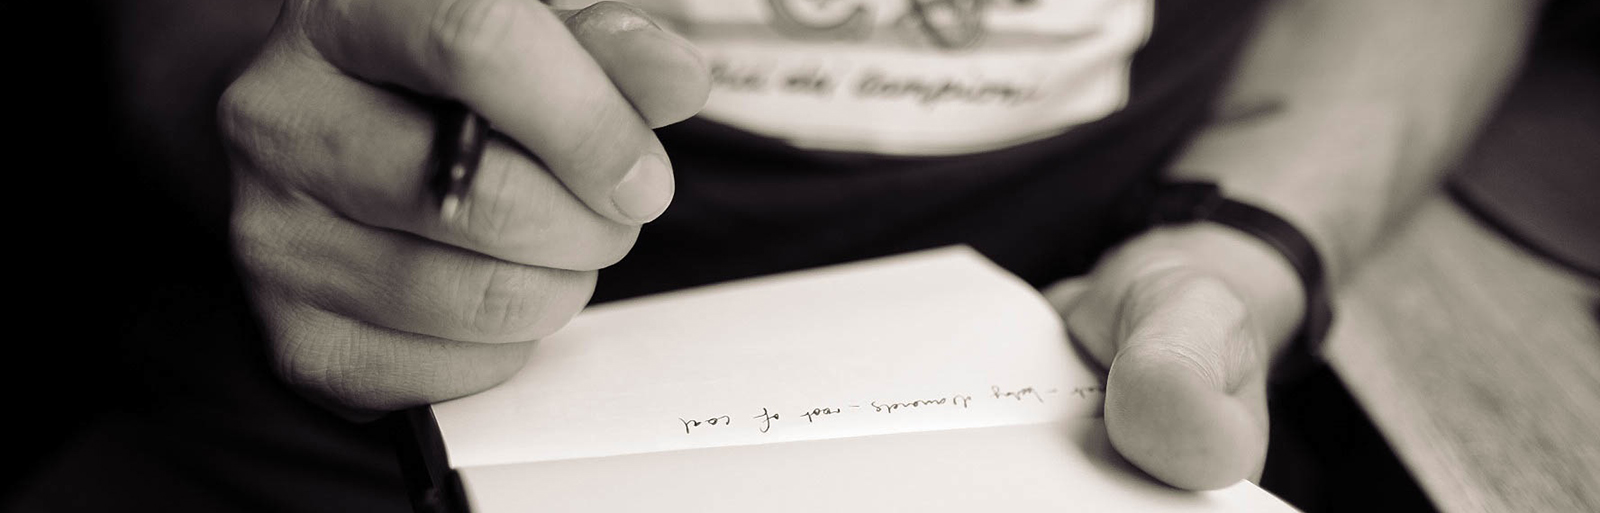 da Campioni
- baby diamonds - root of coal